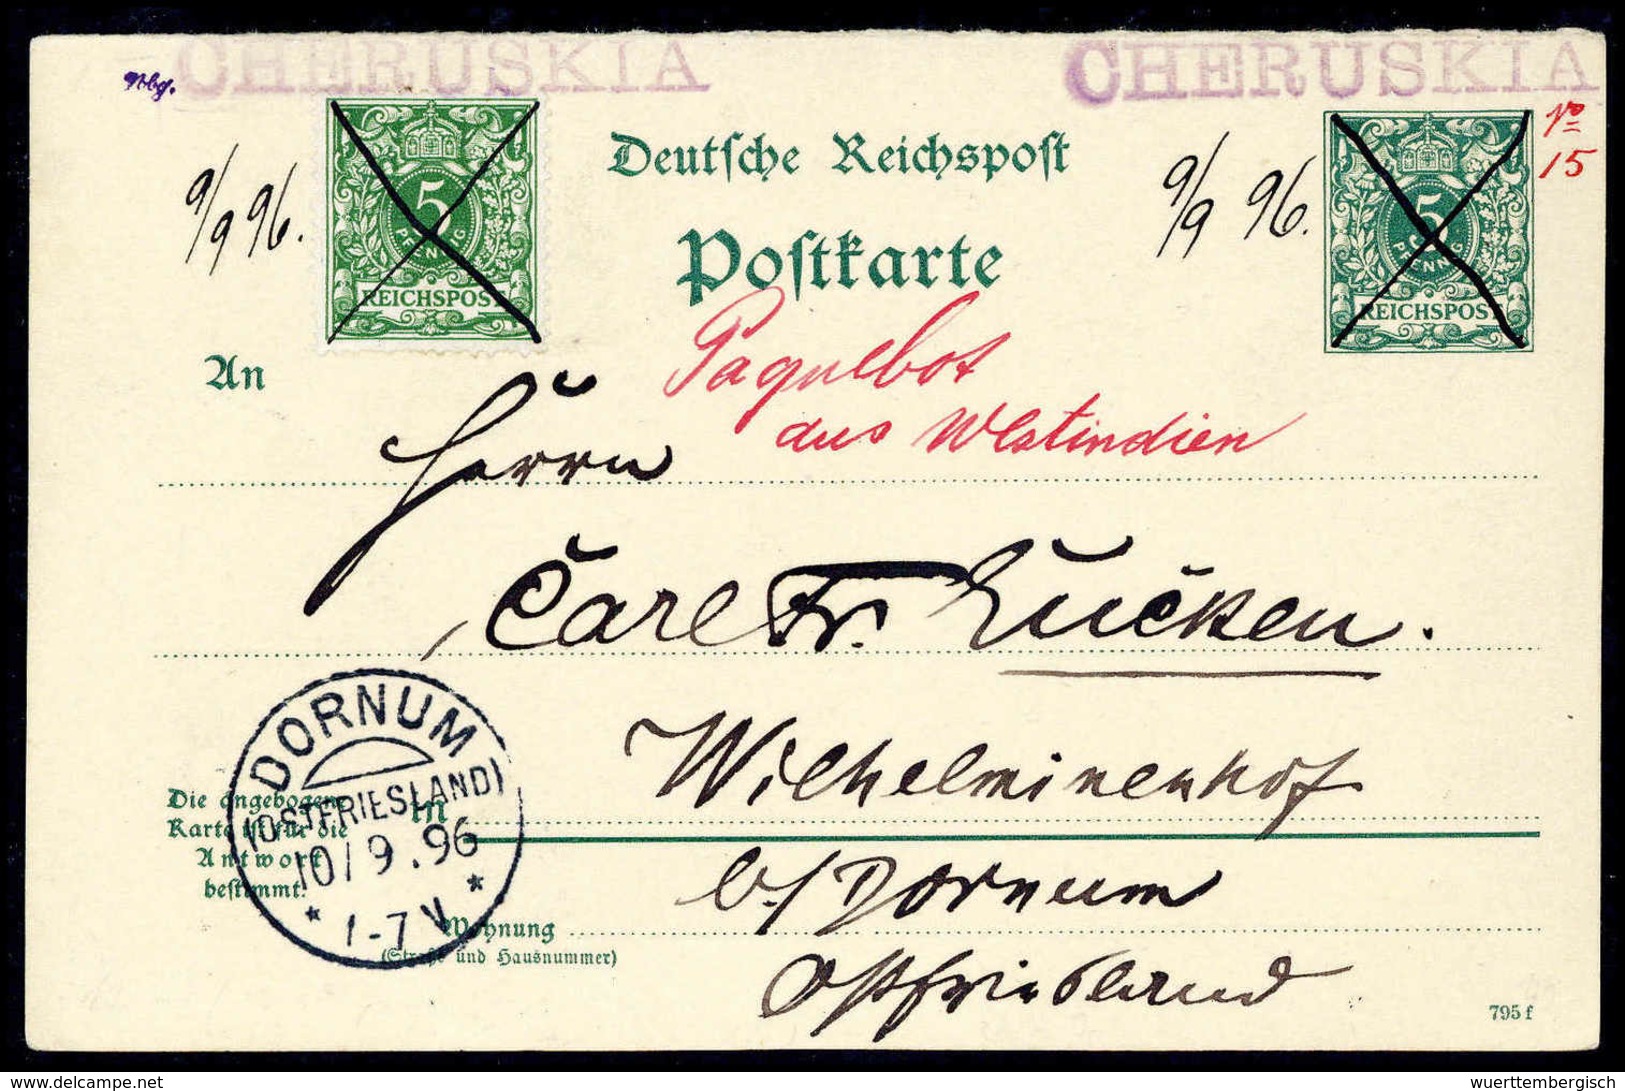 CHERUSKIA
CHERUSKIA
Nbg.
No
15
Deutſche Reichspoſt
Postkarte
9/9 96.
9/9 96.
5
PFENNIG
REICHSPOST
5
PFENNIG
REICHSPOST
Paquebot
aus Westindien
An
Herrn
Carl Fr. Lücken.
Wilhelminenhof
in
b/Dornum
Ostfriesland
DORNUM
(OSTFRIESLAND)
10/9.96
1-7V
* *
Die angebogene
Karte iſt für die
Antwort
beſtimmt.
Wohnung
(Straße und Hausnummer)
795 f
www.delcampe.net
wuerttembergisch